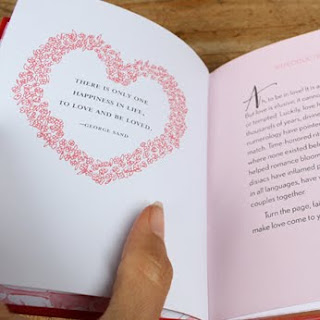 THERE IS ONLY ONE
HAPPINESS IN LIFE,
TO LOVE AND BE LOVED.
—GEORGE SAND
Ah, to be in love! It is
But
is illusive: it
or tempted. Luckily, love
thousands of years, divin
numerology have pointed
match. Time-honored rit
where none existed befo
helped romance bloom
disiacs have inflamed p
in all languages, have
couples together.
Turn the page, fai
make love come to y